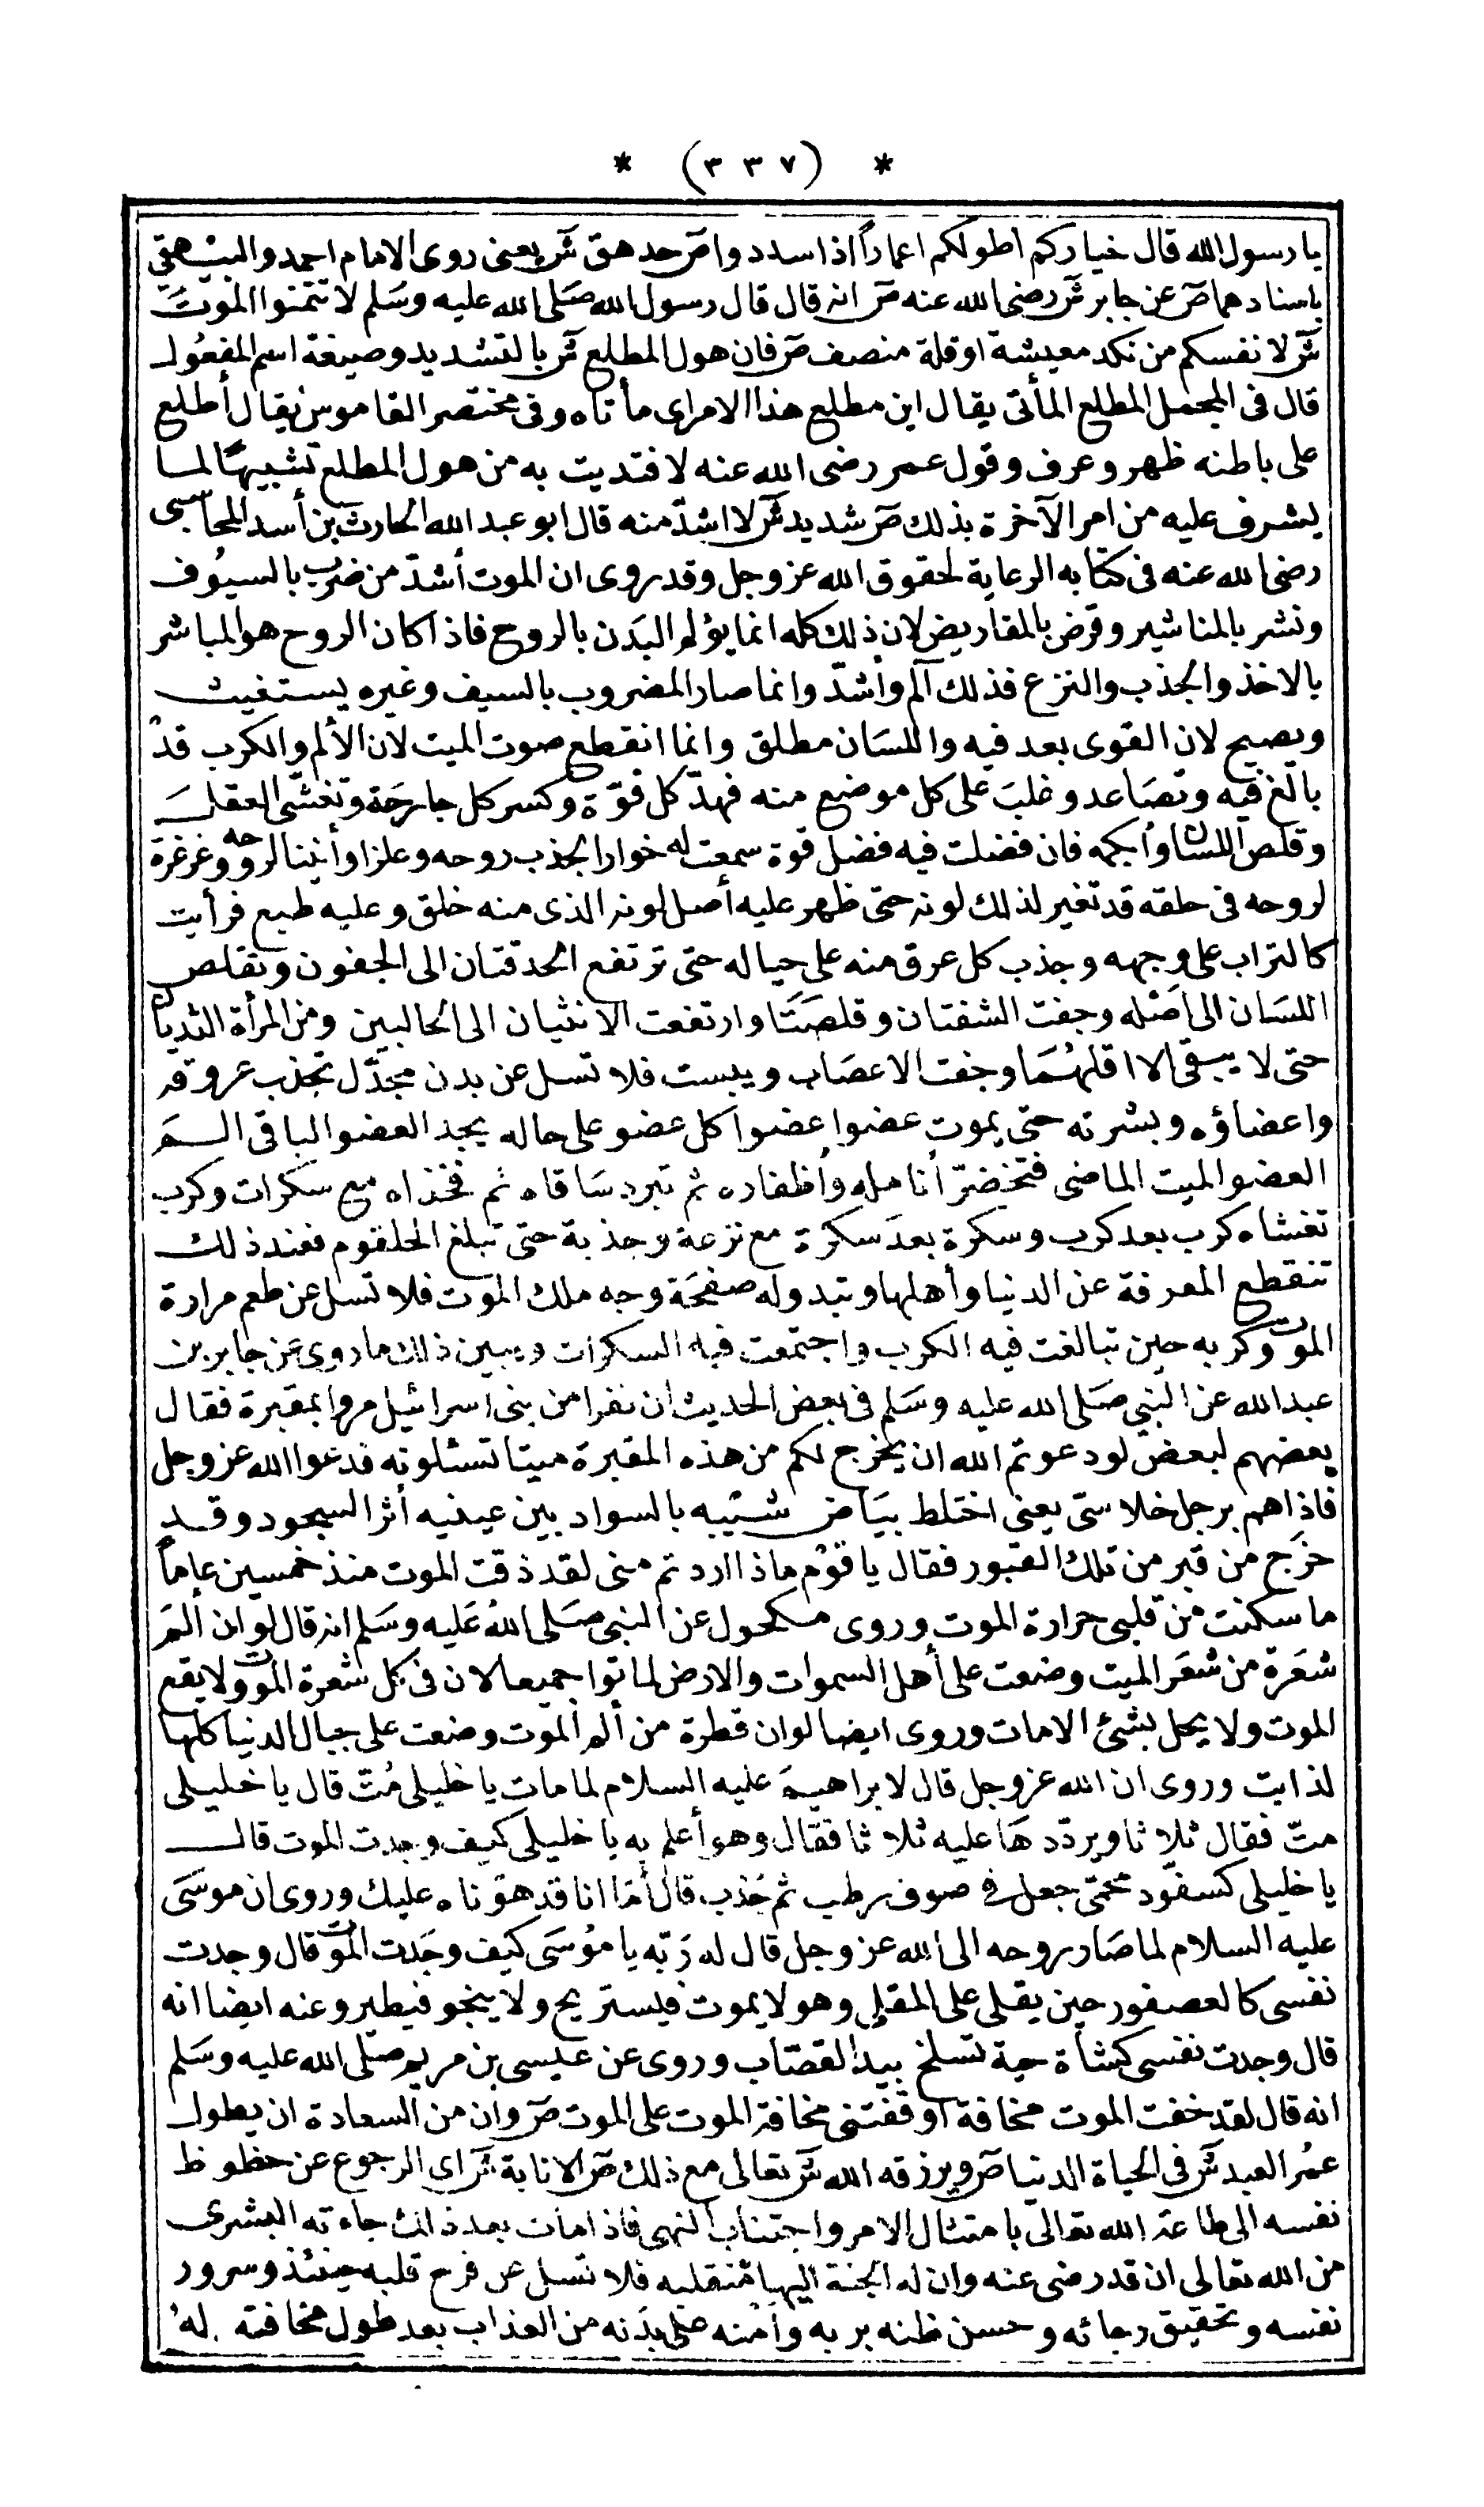 * (٣٣٧) *
يا رسول الله قال خياركم اطولكم اعمارا اذا سددوا ص حد هق ش يعنى روى الامام احمد والبيهقي
باسنادهما ص عن جابر ش رضى الله عنه ص انه قال قال رسول الله صلى الله عليه وسلم لا تتمنوا الموت
ش لانفسكم من نكد معيشة او قلة منصف ص فان هول المطلع ش بالتشديد وصيغة اسم المفعول
قال فى المجمل المطلع المأتى يقال اين مطلع هذا الامر اى مأتاه وفى مختصر القاموس يقال أطلع
على باطنه ظهر وعرف وقول عمر رضى الله عنه لافتديت به من هول المطلع تشبيها لما
يشرف عليه من امر الآخرة بذلك ص شديد ش لا اشد منه قال ابو عبد الله الحارث بن أسد المحاسبى
رضى الله عنه فى كتابه الرعاية لحقوق الله عز وجل وقد روى ان الموت أشد من ضرب بالسيوف
ونشر بالمناشير وقرض بالمقاريض لان ذلك كله انما يؤلم البدن بالروح فاذا كان الروح هو المباشر
بالاخذ والجذب والنزع فذلك آلم وأشد وانما صار المضروب بالسيف وغيره يستغيث
ويصيح لان القوى بعد فيه واللسان مطلق وانما انقطع صوت الميت لان الألم والكرب قد
بالغ فيه وتصاعد وغلب على كل موضع منه فهد كل قوة وكسر كل جارحة وتغشى العقل
وقلص اللسان وأبكمه فان فضلت فيه فضل قوة سمعت له خوارا لجذب روحه وعلزا وأنينا لروحه وغرغرة
لروحه فى حلقه قد تغير لذلك لونه حتى ظهر عليه أصل لونه الذى منه خلق وعليه طبع فرأيت
كالتراب على وجهه وجذب كل عرق منه على حياله حتى ترتفع الحدقتان الى الجفون وتقلص
اللسان الى أصله وجفت الشفتان وقلصتا وارتفعت الانثيان الى الحالبين ومن المرأة الثديان
حتى لا يبقى الا اقلهما وجفت الاعصاب ويبست فلا تسل عن بدن مجدل تجذب عروقه
واعضاؤه وبشرته حتى يموت عضوا عضوا كل عضو على حاله يجد العضو الباقى الم
العضو الميت الماضى فتخضر أنامله وأظفاره ثم تبرد ساقاه ثم فخذاه مع سكرات وكرب
تغشاه كرب بعد كرب وسكرة بعد سكرة مع نزعة وجذبة حتى تبلغ الحلقوم فعند ذلك
تنقطع المعرفة عن الدنيا وأهلها وتبدو له صفحة وجه ملك الموت فلا تسل عن طعم مرارة
الموت وكربه حين تبالغت فيه الكرب واجتمعت فيه السكرات ويبين ذلك ما روى عن جابر بن
عبد الله عن النبي صلى الله عليه وسلم فى بعض الحديث ان نفرا من بنى اسرائيل مروا بمقبرة فقال
بعضهم لبعض لو دعوتم الله ان يخرج لكم من هذه المقبرة ميتا تسئلونه فدعوا الله عز وجل
فاذاهم برجل خلاسى يعنى اختلط بياض شيبه بالسواد بين عينيه أثر السجود وقد
خرج من قبر من تلك القبور فقال يا قوم ماذا اردتم منى لقد ذقت الموت منذ خمسين عاما
ما سكنت من قلبى حرارة الموت وروى مكحول عن النبى صلى الله عليه وسلم انه قال لو ان ألم
شعرة من شعر الميت وضعت على أهل السموات والارض لماتوا جميعا لان فى كل شعرة الموت ولا يقع
الموت ولا يحل بشئ الا مات وروى ايضا لو ان قطرة من ألم الموت وضعت على جبال الدنيا كلها
لذابت وروى ان الله عز وجل قال لابراهيم عليه السلام لما مات يا خليلى مت قال يا خليلى
مت فقال ثلاثا ويرددها عليه ثلاثا فقال وهو أعلم به يا خليلى كيف وجدت الموت قال
يا خليلى كسفود محمى جعل فى صوف رطب ثم جذب قال أما انا قد هوناه عليك وروى ان موسى
عليه السلام لما صار روحه الى الله عز وجل قال له ربه يا موسى كيف وجدت الموت قال وجدت
نفسى كالعصفور حين يقلى على المقلى وهو لا يموت فيستريح ولا ينجو فيطير وعنه ايضا انه
قال وجدت نفسى كشاة حية تسلخ بيد القصاب وروى عن عيسى بن مريم صلى الله عليه وسلم
انه قال لقد خفت الموت مخافة اوقفتنى مخافة الموت على الموت ص وان من السعادة ان يطول
عمر العبد ش فى الحياة الدنيا ص ويرزقه الله ش تعالى مع ذلك ص الانابة ش اى الرجوع عن حظوظ
نفسه الى طاعة الله تعالى بامتثال الامر واجتناب النهى فاذا مات بعد ذلك جاءته البشرى
من الله تعالى ان قد رضى عنه وان له الجنة اليها منقلبه فلا تسل عن فرح قلبه حينئذ وسرور
نفسه وتحقيق رجائه وحسن ظنه بربه وأمنه على بدنه من العذاب بعد طول مخافته له